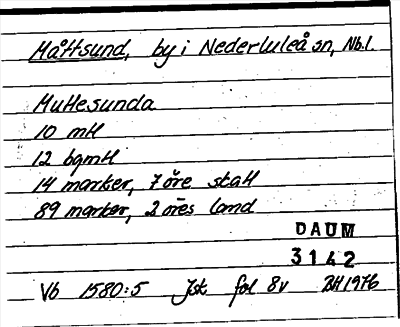 Måttsund, by i Nederluleå sn, Nb.l.
Muttesunda
10 mtl
12 bgmtl
14 marker, 7 öre skatt
89 marker, 2 öres land
DAUM
3142
Vb 1580:5 Jk fol 8v BH 1976